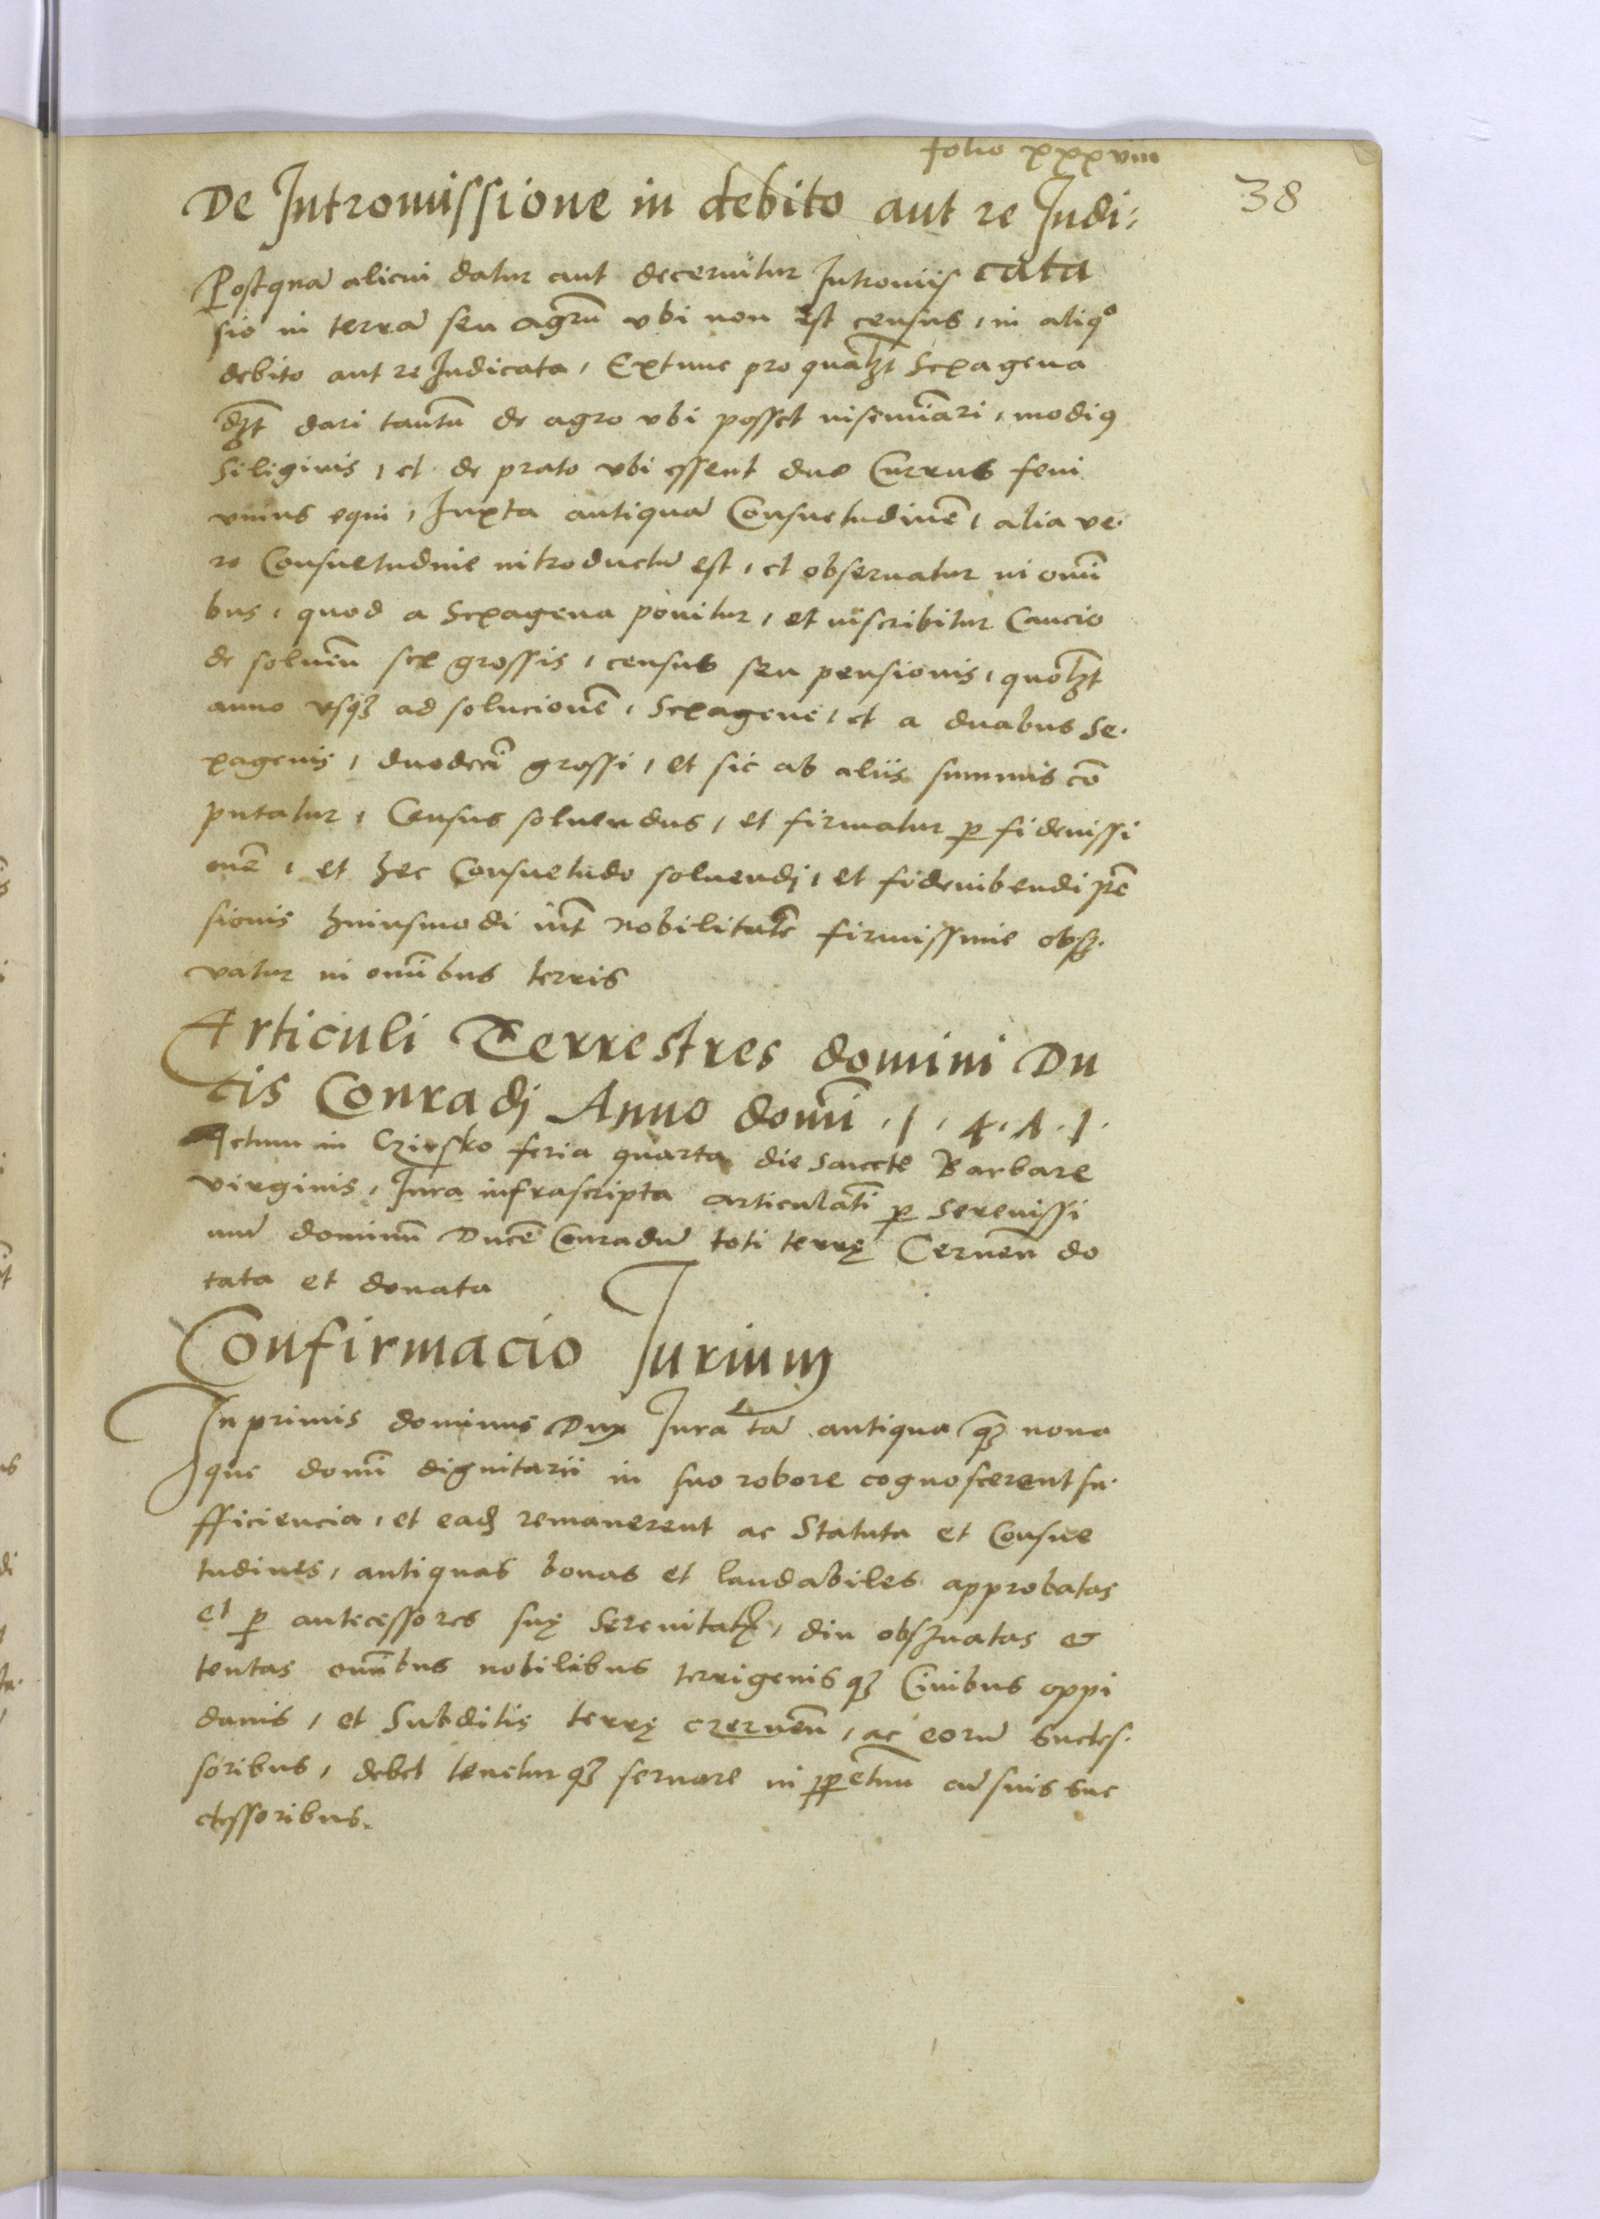 folio xxxviii
38
De Intromissione in debito aut re Judi:
cata
Postquā alicui datur aut decernitur Intromis
sio in terrā seu agrū vbi non est census, in aliqº
debito aut re Judicata, Extunc pro qualꝫt Sexagena
dꝫt dari tantū de agro vbi posset inseminari, modiꝰ
Siliginis, et de prato vbi essent duo Currus feni
vnius equi, Juxta antiquā Consuetudinē, alia ve-
ro Consuetudine introductū est, et obseruatur in omī
bus, quod a Sexagena ponitur, et inscribitur Caucio
de soluēn sex grossis, census seu pensionis, quolꝫt
anno vsqꝫ ad solucionē, Sexagene, et a duabus Se-
xagenis, duodecī grossi, et sic ab aliis summis cō
putatur, Census soluendus, et firmatur ꝑ fideiussi
onē, et hec Consuetudo soluendi, et fideiubendi pē
sionis huiusmodi int̄ Nobilitatē firmissime obsꝫ-
vatur in omībus terris
Articuli Terrestres domini Du
cis Conradi Anno domī .1.4.7.1.
Actum in Czirsko feria quarta die Sancte Barbare
virginis, Jura infrascripta articulatī ꝑ Serenissi
mū dominū Ducē Conradū toti terrę Cernēn do
tata et donata
Confirmacio Jurium
Inprimis dominus Dux Jura tā antiqua qꝫ noua
que domī dignitarii in suo robore cognoscerent su-
fficiencia, et eadꝫ remanerent ac Statuta et Consue
tudines, antiquas bonas et laudabiles approbatas
et ꝑ antecessores suę Serenitatꝭ, diu obsꝫuatas &
tentas omībus nobilibus terrigenis qꝫ Ciuibus oppi
danis, et Subditis terrę czernēn, ac eorū Succes-
soribus, debet tenetur qꝫ seruare in ꝑpetuū cū suis Suc
cessoribus.